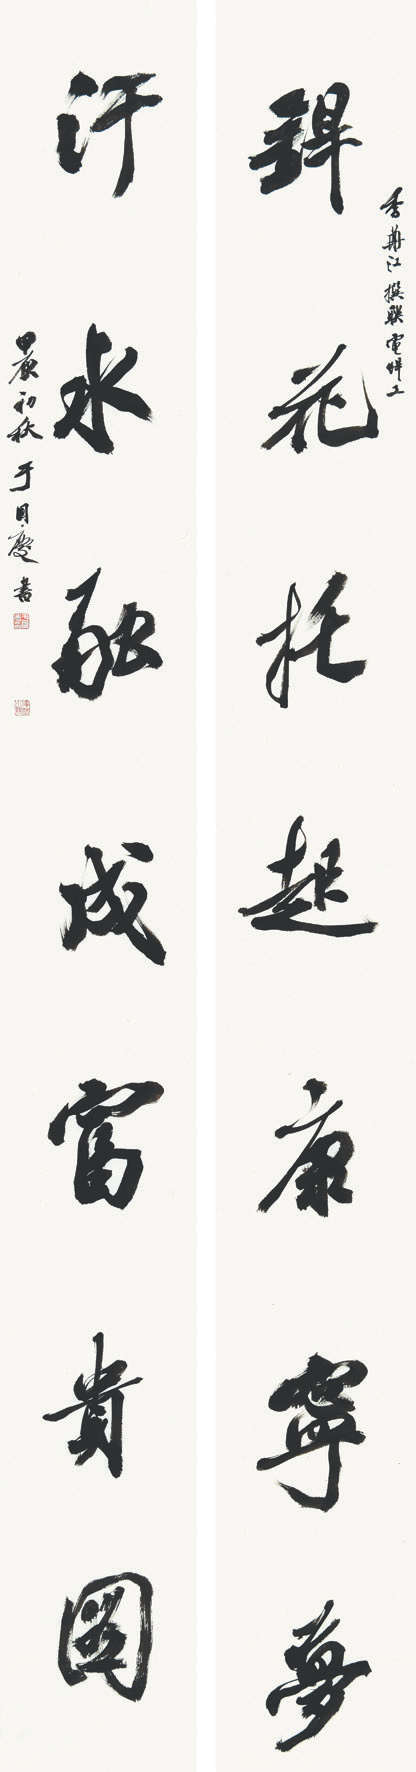 香冉江撰聯電焊工
銲花托起康寧夢
汗水融成富貴圖
甲辰初秋于月慶書